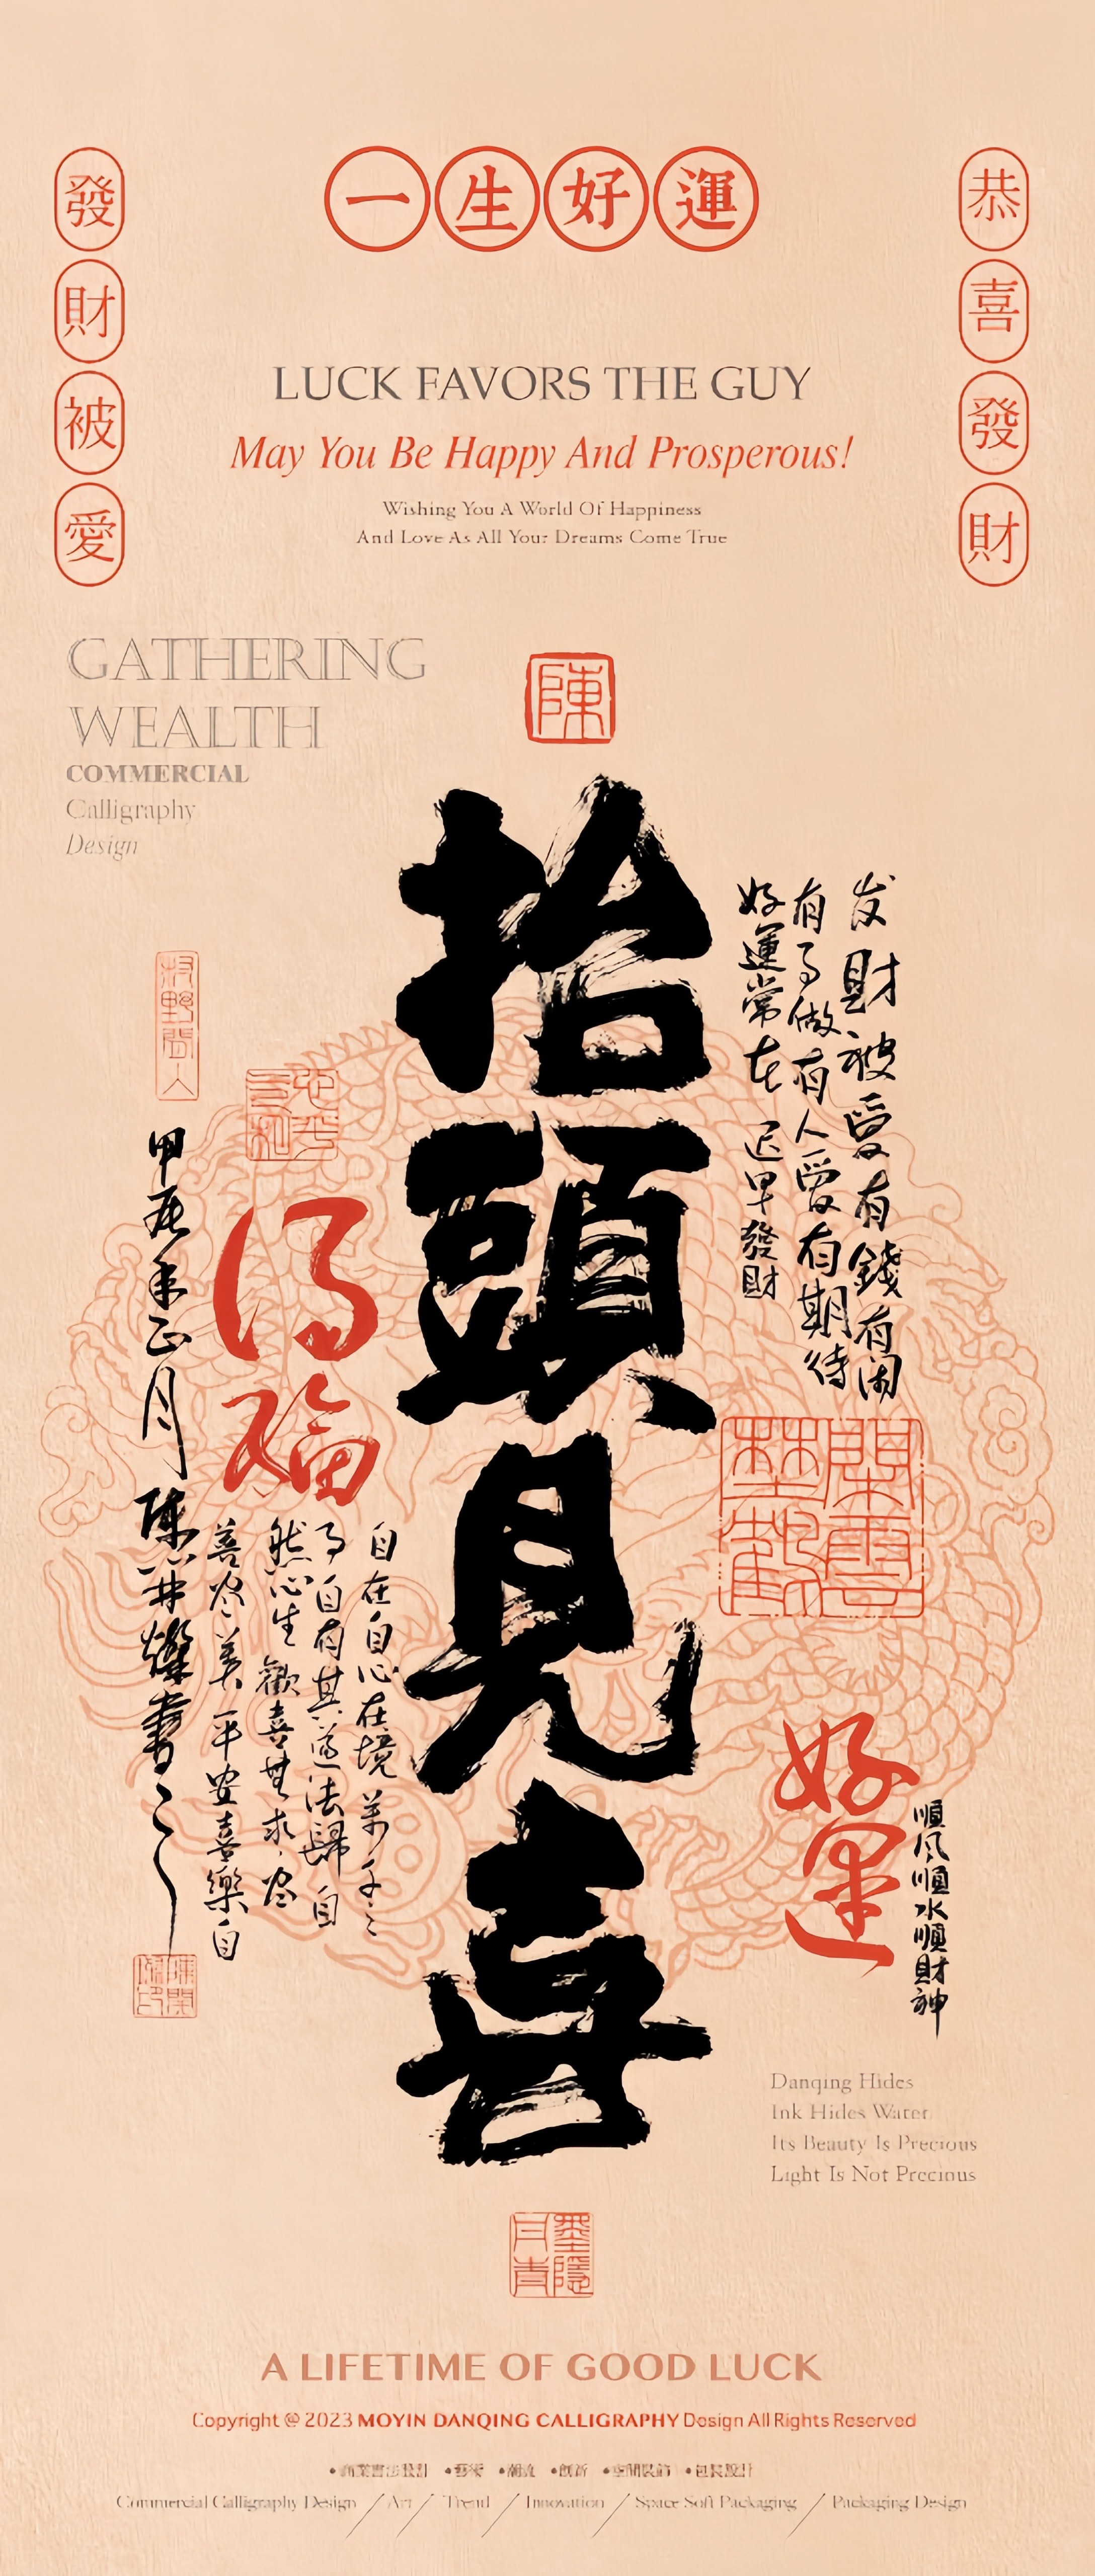 一生好運
發財被愛
恭喜發財
LUCK FAVORS THE GUY
May You Be Happy And Prosperous!
Wishing You A World Of Happiness
And Love As All Your Dreams Come True
GATHERING
WEALTH
COMMERCIAL
Calligraphy
Design
陳
抬頭見喜
发財被愛有錢有闲
有事做有人愛有期待
好運常在迟早發財
得福
甲辰年正月陈
自在自心在境
了自有其道法歸自
然心生歡喜無求尽
善尽美平安喜樂自
好运
順风順水順財神
Danqing Hides
Ink Hides Water
Its Beauty Is Precious
Light Is Not Precious
墨隱丹青
A LIFETIME OF GOOD LUCK
Copyright @ 2023 MOYIN DANQING CALLIGRAPHY Design All Rights Reserved
•商業書法設計 •藝術 •潮流 •創新 •空間裝飾 •包裝設計
Commercial Calligraphy Design / Art / Trend / Innovation / Space Soft Packaging / Packaging Design